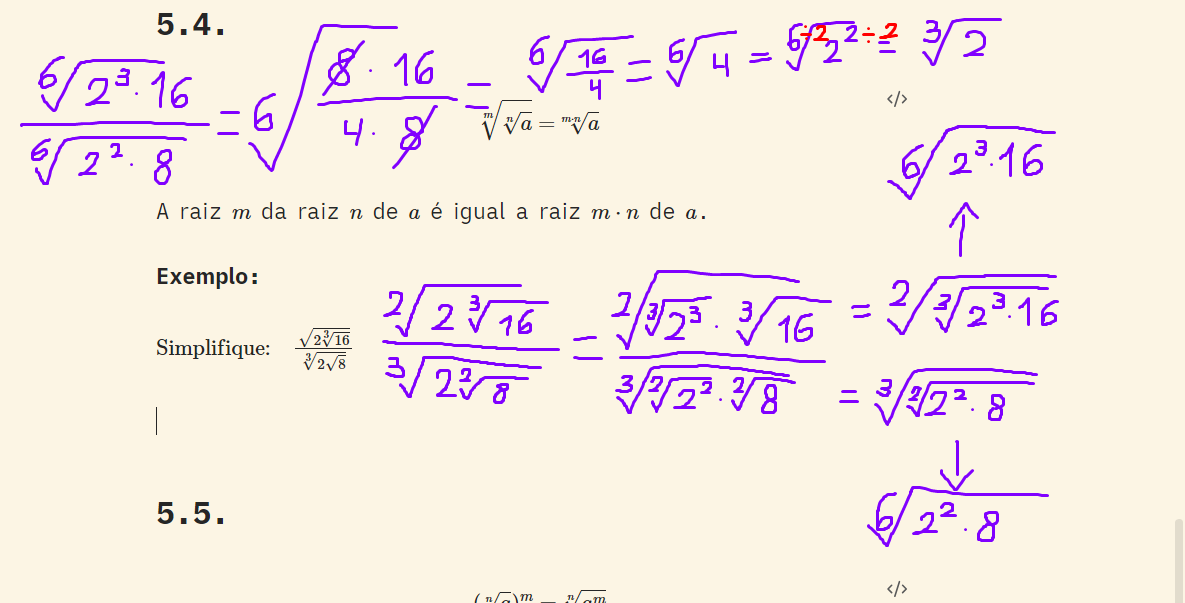 5.4.
$\frac{\sqrt[6]{2^3 \cdot 16}}{\sqrt[6]{2^2 \cdot 8}} = \sqrt[6]{\frac{8 \cdot 16}{4 \cdot 8}} = \sqrt[6]{\frac{16}{4}} = \sqrt[6]{4} = \sqrt[6 \div 2]{2^{2 \div 2}} = \sqrt[3]{2}$
</>
$\sqrt[m]{\sqrt[n]{a}} = \sqrt[m \cdot n]{a}$
$\sqrt[6]{2^3 \cdot 16}$
↑
A raiz $m$ da raiz $n$ de $a$ é igual a raiz $m \cdot n$ de $a$.
Exemplo:
Simplifique: $\frac{\sqrt{2\sqrt[3]{16}}}{\sqrt[3]{2\sqrt{8}}}$
$\frac{\sqrt[2]{2\sqrt[3]{16}}}{\sqrt[3]{2\sqrt[2]{8}}} = \frac{\sqrt[2]{\sqrt[3]{2^3} \cdot \sqrt[3]{16}}}{\sqrt[3]{\sqrt[2]{2^2} \cdot \sqrt[2]{8}}}$
$= \sqrt[2]{\sqrt[3]{2^3 \cdot 16}}$
$= \sqrt[3]{\sqrt[2]{2^2 \cdot 8}}$
↓
$\sqrt[6]{2^2 \cdot 8}$
5.5.
</>
$(\sqrt[n]{a})^m = \sqrt[n]{a^m}$